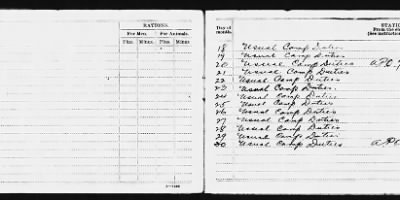 RATIONS.
For Men. For Animals.
Plus. Minus. Plus. Minus.
Day of month.
STATIO
From the
(See instruction
18 Usual Camp Duties
19 Usual Camp Duties
20 Usual Camp Duties A.P.O.
21 Usual Camp Duties
22 Usual Camp Duties
23 Usual Camp Duties
24 Usual Camp Duties
25 Usual Camp Duties
26 Usual Camp Duties
27 Usual Camp Duties
28 Usual Camp Duties
29 Usual Camp Duties
30 Usual Camp Duties